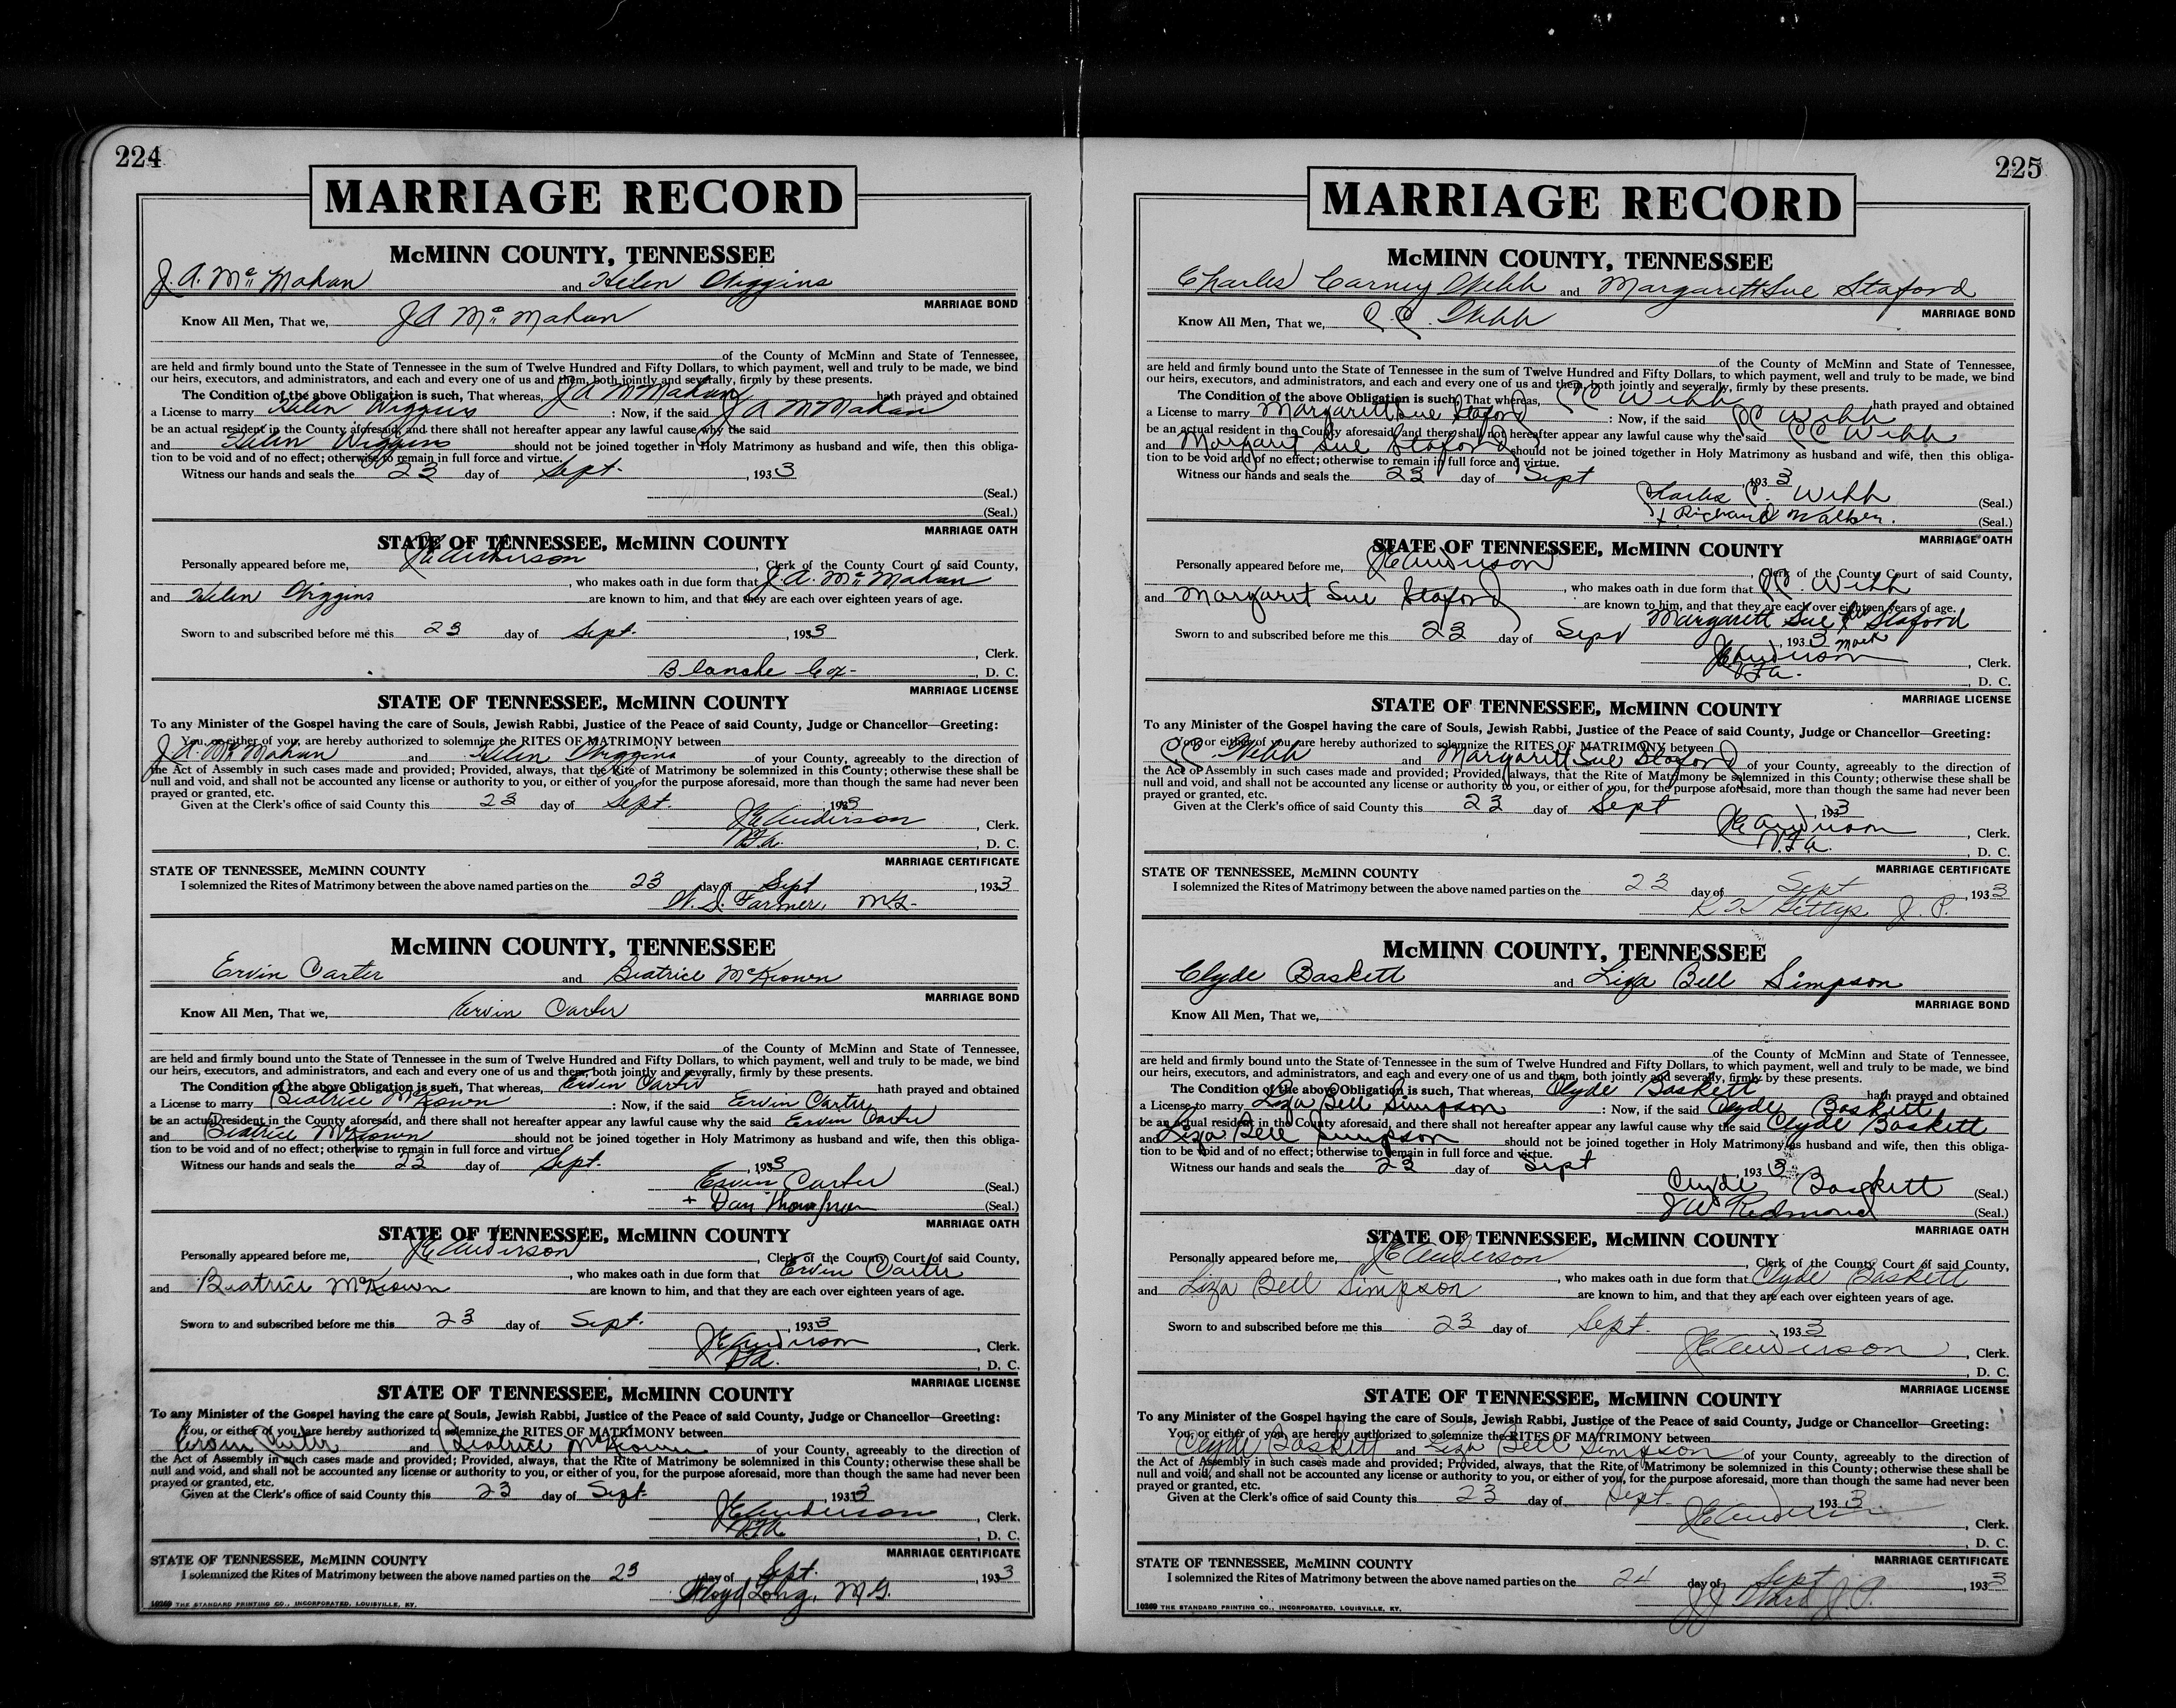 224
MARRIAGE RECORD
McMINN COUNTY, TENNESSEE
J. A. McMahan and Helen Wiggins
MARRIAGE BOND
Know All Men, That we, J A McMahan
of the County of McMinn and State of Tennessee,
are held and firmly bound unto the State of Tennessee in the sum of Twelve Hundred and Fifty Dollars, to which payment, well and truly to be made, we bind
our heirs, executors, and administrators, and each and every one of us and them, both jointly and severally, firmly by these presents.
The Condition of the above Obligation is such, That whereas, J A McMahan hath prayed and obtained
a License to marry Helen Wiggins : Now, if the said J A McMahan
be an actual resident in the County aforesaid, and there shall not hereafter appear any lawful cause why the said
and Helen Wiggins should not be joined together in Holy Matrimony as husband and wife, then this obliga-
tion to be void and of no effect; otherwise to remain in full force and virtue.
Witness our hands and seals the 23 day of Sept. , 1933
(Seal.)
(Seal.)
MARRIAGE OATH
STATE OF TENNESSEE, McMINN COUNTY
Personally appeared before me, J E Anderson , Clerk of the County Court of said County,
, who makes oath in due form that J. A. McMahan
and Helen Wiggins are known to him, and that they are each over eighteen years of age.
Sworn to and subscribed before me this 23 day of Sept. , 1933
, Clerk.
Blanche Cox , D. C.
MARRIAGE LICENSE
STATE OF TENNESSEE, McMINN COUNTY
To any Minister of the Gospel having the care of Souls, Jewish Rabbi, Justice of the Peace of said County, Judge or Chancellor—Greeting:
You, or either of you, are hereby authorized to solemnize the RITES OF MATRIMONY between
J. A. McMahan and Helen Wiggins of your County, agreeably to the direction of
the Act of Assembly in such cases made and provided; Provided, always, that the Rite of Matrimony be solemnized in this County; otherwise these shall be
null and void, and shall not be accounted any license or authority to you, or either of you, for the purpose aforesaid, more than though the same had never been
prayed or granted, etc.
Given at the Clerk's office of said County this 23 day of Sept. , 1933
J E Anderson , Clerk.
, D. C.
MARRIAGE CERTIFICATE
STATE OF TENNESSEE, McMINN COUNTY
I solemnized the Rites of Matrimony between the above named parties on the 23 day of Sept , 1933
Farmer, M.G.
McMINN COUNTY, TENNESSEE
Ervin Carter and Beatrice McKeown
MARRIAGE BOND
Know All Men, That we, Ervin Carter
of the County of McMinn and State of Tennessee,
are held and firmly bound unto the State of Tennessee in the sum of Twelve Hundred and Fifty Dollars, to which payment, well and truly to be made, we bind
our heirs, executors, and administrators, and each and every one of us and them, both jointly and severally, firmly by these presents.
The Condition of the above Obligation is such, That whereas, Ervin Carter hath prayed and obtained
a License to marry Beatrice McKeown : Now, if the said Ervin Carter
be an actual resident in the County aforesaid, and there shall not hereafter appear any lawful cause why the said Ervin Carter
and Beatrice McKeown should not be joined together in Holy Matrimony as husband and wife, then this obliga-
tion to be void and of no effect; otherwise to remain in full force and virtue.
Witness our hands and seals the 23 day of Sept. , 1933
Ervin Carter (Seal.)
+ Dan Thompson (Seal.)
MARRIAGE OATH
STATE OF TENNESSEE, McMINN COUNTY
Personally appeared before me, J E Anderson , Clerk of the County Court of said County,
, who makes oath in due form that Ervin Carter
and Beatrice McKeown are known to him, and that they are each over eighteen years of age.
Sworn to and subscribed before me this 23 day of Sept. , 1933
J E Anderson , Clerk.
, D. C.
MARRIAGE LICENSE
STATE OF TENNESSEE, McMINN COUNTY
To any Minister of the Gospel having the care of Souls, Jewish Rabbi, Justice of the Peace of said County, Judge or Chancellor—Greeting:
You, or either of you, are hereby authorized to solemnize the RITES OF MATRIMONY between
Ervin Carter and Beatrice McKeown of your County, agreeably to the direction of
the Act of Assembly in such cases made and provided; Provided, always, that the Rite of Matrimony be solemnized in this County; otherwise these shall be
null and void, and shall not be accounted any license or authority to you, or either of you, for the purpose aforesaid, more than though the same had never been
prayed or granted, etc.
Given at the Clerk's office of said County this 23 day of Sept. , 1933
J E Anderson , Clerk.
, D. C.
MARRIAGE CERTIFICATE
STATE OF TENNESSEE, McMINN COUNTY
I solemnized the Rites of Matrimony between the above named parties on the 23 day of Sept. , 1933
Floyd Long, M.G.
10269 THE STANDARD PRINTING CO., INCORPORATED, LOUISVILLE, KY.
225
MARRIAGE RECORD
McMINN COUNTY, TENNESSEE
Charles Carney Webb and Margarett Sue Staford
MARRIAGE BOND
Know All Men, That we, C. C. Webb
of the County of McMinn and State of Tennessee,
are held and firmly bound unto the State of Tennessee in the sum of Twelve Hundred and Fifty Dollars, to which payment, well and truly to be made, we bind
our heirs, executors, and administrators, and each and every one of us and them, both jointly and severally, firmly by these presents.
The Condition of the above Obligation is such, That whereas, C C Webb hath prayed and obtained
a License to marry Margarett Sue Staford : Now, if the said C C Webb
be an actual resident in the County aforesaid, and there shall not hereafter appear any lawful cause why the said C C Webb
and Margaret Sue Staford should not be joined together in Holy Matrimony as husband and wife, then this obliga-
tion to be void and of no effect; otherwise to remain in full force and virtue.
Witness our hands and seals the 23 day of Sept , 1933
Charles C. Webb (Seal.)
+ Richard Walker. (Seal.)
MARRIAGE OATH
STATE OF TENNESSEE, McMINN COUNTY
Personally appeared before me, J E Anderson , Clerk of the County Court of said County,
, who makes oath in due form that C C. Webb
and Margaret Sue Staford are known to him, and that they are each over eighteen years of age.
Margarett Sue her x Staford
Sworn to and subscribed before me this 23 day of Sept , 1933 mark
J E Anderson , Clerk.
, D. C.
MARRIAGE LICENSE
STATE OF TENNESSEE, McMINN COUNTY
To any Minister of the Gospel having the care of Souls, Jewish Rabbi, Justice of the Peace of said County, Judge or Chancellor—Greeting:
You, or either of you, are hereby authorized to solemnize the RITES OF MATRIMONY between
C C Webb and Margarett Sue Staford of your County, agreeably to the direction of
the Act of Assembly in such cases made and provided; Provided, always, that the Rite of Matrimony be solemnized in this County; otherwise these shall be
null and void, and shall not be accounted any license or authority to you, or either of you, for the purpose aforesaid, more than though the same had never been
prayed or granted, etc.
Given at the Clerk's office of said County this 23 day of Sept , 1933
J E Anderson , Clerk.
, D. C.
MARRIAGE CERTIFICATE
STATE OF TENNESSEE, McMINN COUNTY
I solemnized the Rites of Matrimony between the above named parties on the 23 day of Sept , 1933
Gettys J. P.
McMINN COUNTY, TENNESSEE
Clyde Baskett and Liza Bell Simpson
MARRIAGE BOND
Know All Men, That we,
of the County of McMinn and State of Tennessee,
are held and firmly bound unto the State of Tennessee in the sum of Twelve Hundred and Fifty Dollars, to which payment, well and truly to be made, we bind
our heirs, executors, and administrators, and each and every one of us and them, both jointly and severally, firmly by these presents.
The Condition of the above Obligation is such, That whereas, Clyde Baskett hath prayed and obtained
a License to marry Liza Bell Simpson : Now, if the said Clyde Baskett
be an actual resident in the County aforesaid, and there shall not hereafter appear any lawful cause why the said Clyde Baskett
and Liza Bell Simpson should not be joined together in Holy Matrimony as husband and wife, then this obliga-
tion to be void and of no effect; otherwise to remain in full force and virtue.
Witness our hands and seals the 23 day of Sept 1933
Clyde Baskett (Seal.)
J W Redmond (Seal.)
MARRIAGE OATH
STATE OF TENNESSEE, McMINN COUNTY
Personally appeared before me, J E Anderson , Clerk of the County Court of said County,
, who makes oath in due form that Clyde Baskett
and Liza Bell Simpson are known to him, and that they are each over eighteen years of age.
Sworn to and subscribed before me this 23 day of Sept. , 1933
J E Anderson , Clerk.
, D. C.
MARRIAGE LICENSE
STATE OF TENNESSEE, McMINN COUNTY
To any Minister of the Gospel having the care of Souls, Jewish Rabbi, Justice of the Peace of said County, Judge or Chancellor—Greeting:
You, or either of you, are hereby authorized to solemnize the RITES OF MATRIMONY between
Clyde Baskett and Liza Bell Simpson of your County, agreeably to the direction of
the Act of Assembly in such cases made and provided; Provided, always, that the Rite of Matrimony be solemnized in this County; otherwise these shall be
null and void, and shall not be accounted any license or authority to you, or either of you, for the purpose aforesaid, more than though the same had never been
prayed or granted, etc.
Given at the Clerk's office of said County this 23 day of Sept. , 1933
J E Anderson , Clerk.
, D. C.
MARRIAGE CERTIFICATE
STATE OF TENNESSEE, McMINN COUNTY
I solemnized the Rites of Matrimony between the above named parties on the 24 day of Sept , 1933
Ward J. P.
10269 THE STANDARD PRINTING CO., INCORPORATED, LOUISVILLE, KY.